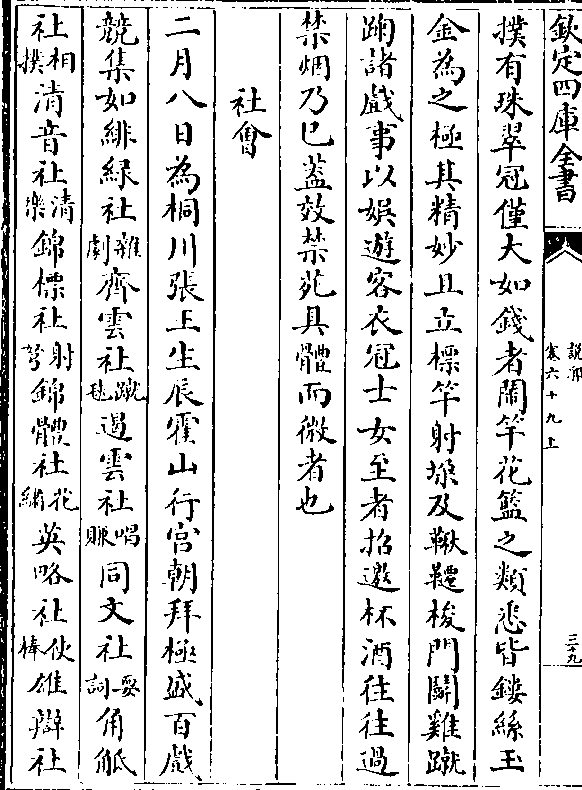 欽定四庫全書
說郛
卷六十九上
三十九
撲有珠翠冠僅大如錢者鬧竿花籃之類悉皆鏤絲玉
金為之極其精妙且立標竿射垛及鞦韆梭門鬬雞蹴
踘諸戲事以娛遊客衣冠士女至者招邀杯酒往往過
禁烟乃已蓋效禁苑具體而微者也
社會
二月八日為桐川張王生辰霍山行宮朝拜極盛百戲
競集如緋緑社雜劇齊雲社蹴毬遏雲社唱賺同文社耍詞角觝
社相撲清音社清樂錦標社射弩錦體社花繡英略社使棒雄辯社